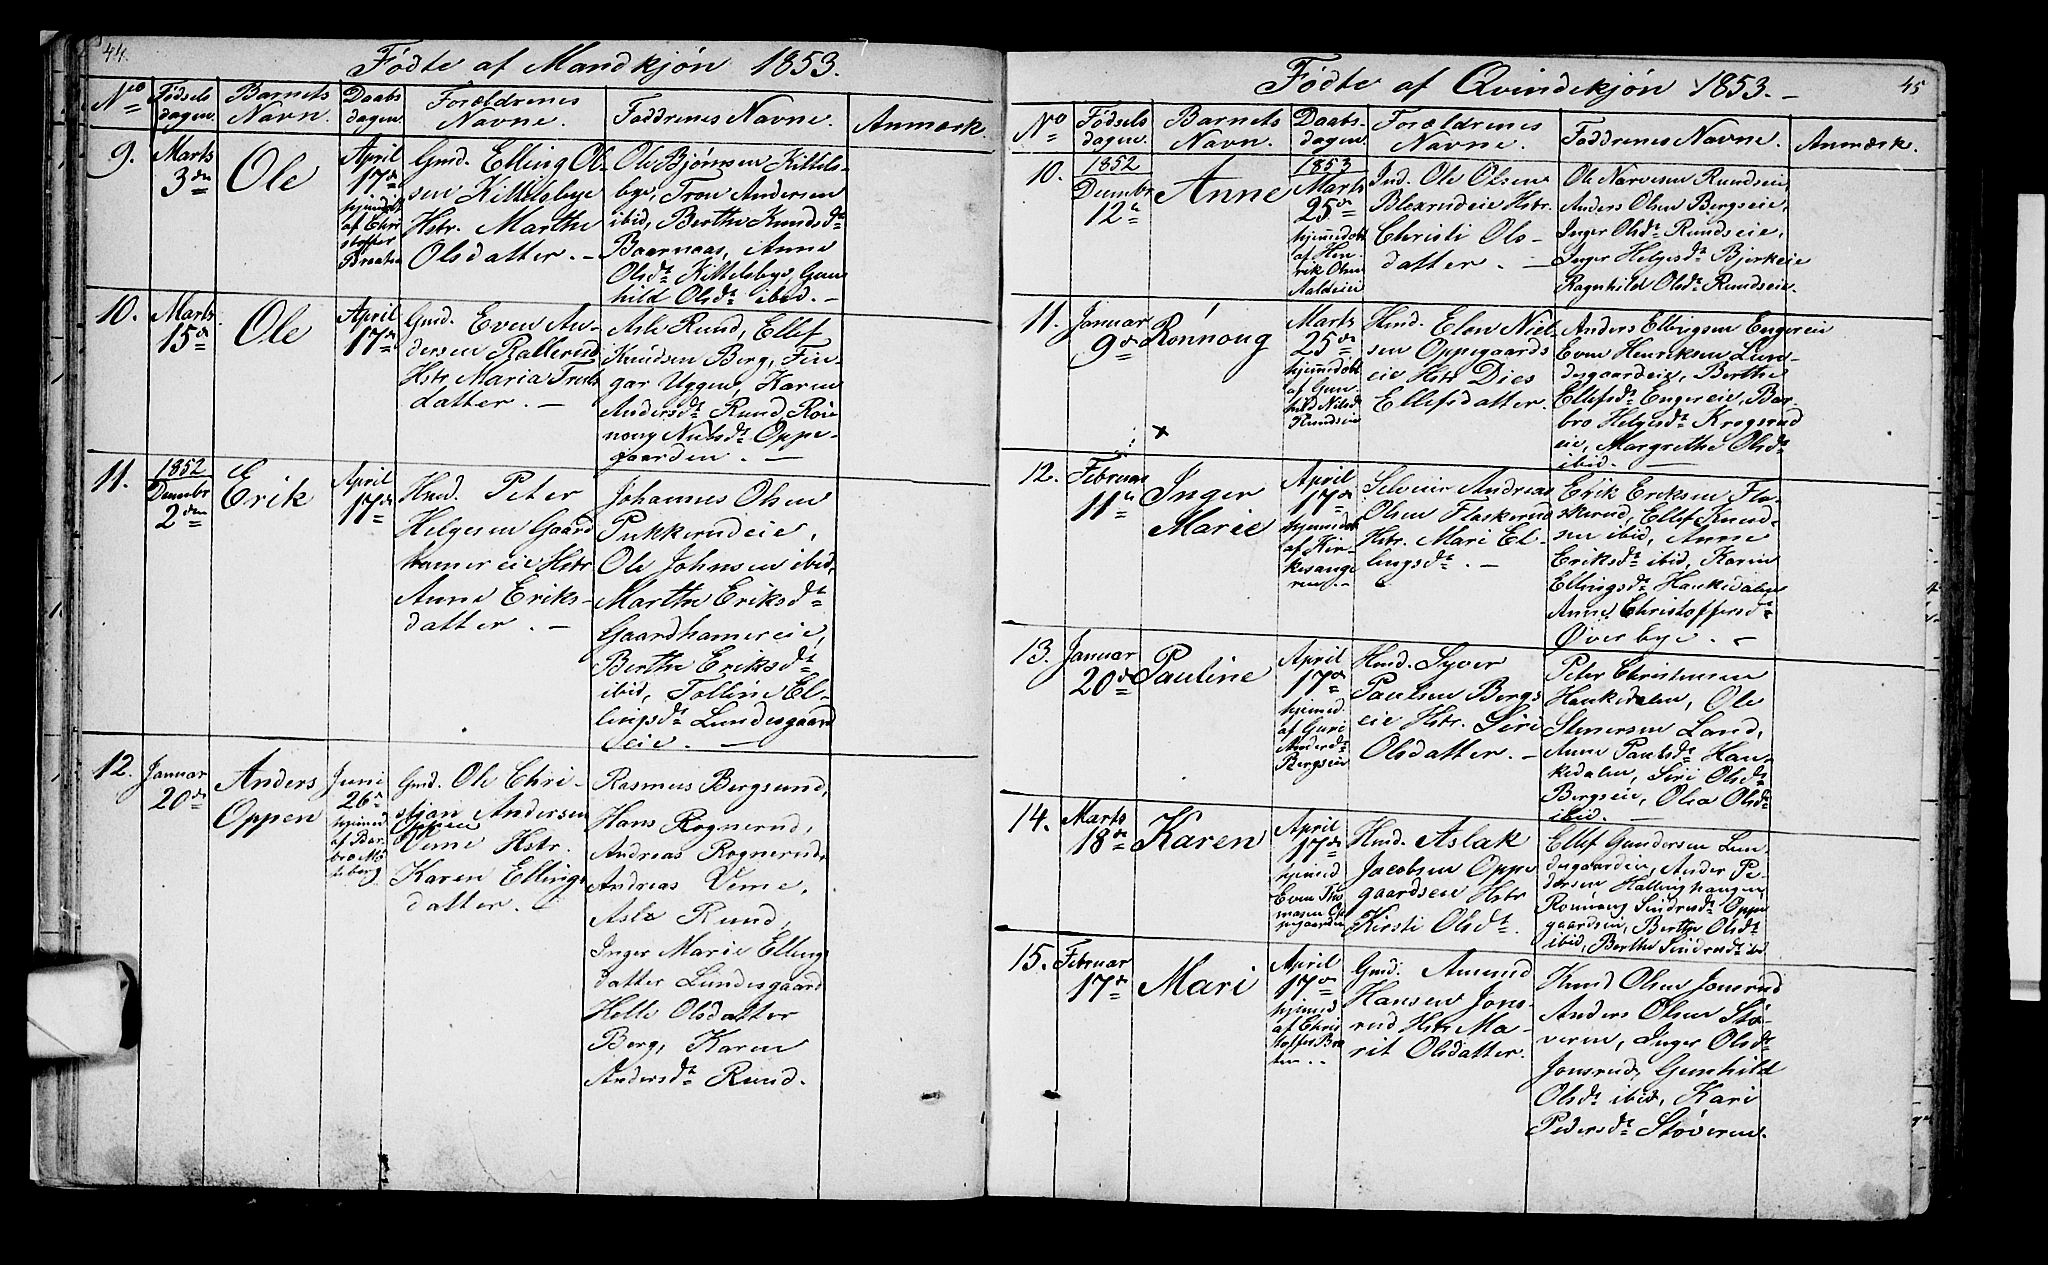 44.
Fødte af Mandkjøn 1853.
No
Fødsels
dagen.
Barnets
Navn.
Daabs
dagen.
Forældrenes
Navne.
Faddrenes Navne.
Anmærk.
9.
Marts
3de
Ole
April
17de
hjemdøbt
af Chri
stoffer
Braaten
Gmd. Elling Ol-
sen Kittelsbye
Hstr. Marthe
Olsdatter. —
Ole Bjørnsen Kittels-
bye, Tron Andersen
ibid, Berthe Knudsdt
Baarnaas, Anne
Olsdt Kittelsbye, Gun
hild Olsdt ibid. —
10.
Marts
15de
Ole
April
17de
Gmd. Even An-
dersen Rallerud
Hstr. Maria Troels
datter. —
Asle Ruud, Ellef
Knudsen Berg, Fin-
gar Uggen, Karen
Andersdt Ruud, Røn
noug Nielsdt Oppe-
gaarden. —
11.
1852
Decembr
2den
Erik
April
17de
Hmd. Peter
Helgesen Gaard
hamereie Hstr
Anne Eriks-
datter. —
Johannes Olsen
Pukkerudeie,
Ole Johnsen ibid,
Marthe Eriksdt
Gaardhamereie,
Berthe Eriksdt
ibid, Tolline El-
lingsdt Lundesgaard
seie. —
12.
Januar
20de
Anders
Oppen
Juni
26de
hjemd
af Bar
bro Mo
Gmd. Ole Chri-
stian Andersen
Oppen
Veme Hstr.
Karen Ellings
datter. —
Rasmus Bergsund,
Hans Rognerud,
Andreas Rognerud,
Andreas Veme,
Asle Ruud,
Inger Marie Elling
datter Lundesgaard
Helle Olsdatter
Berg, Karen
Andersdt Ruud.
45
Fødte af Qvindekjøn 1853. —
No
Fødsels
dagen.
Barnets
Navn.
Daabs-
dagen.
Forældrenes
Navne.
Faddrenes Navne.
Anmærk.
10.
1852
Decembr
12te
Anne
1853
Marts
25de
hjemmedøbt
af Hen
rik Olsen
Aaldeie
Ind. Ole Olsen
Blexrudeie Hstr.
Christi Ols-
datter. —
Ole Narvesen Ruudseie,
Anders Olsen Bergseie,
Inger Olsdt Ruudseie,
Inger Helgesdt Bjerkeie
Ragnhild Olsdt Ruudseie.
11.
Januar
9de
Rønnoug
Marts
25de
hjemmedøbt
af Gun
hild Nilsdt
Ruudseie
Hmd. Elon Niel-
sen Oppegaards
eie Hstr Dies
Ellefsdatter.
Anders Ellingsen Engereie
Even Henriksen Lun-
desgaardeie, Berthe
Ellefsdt Engereie, Bar-
bro Helgesdt Krogsrud
eie, Margrethe Olsdt
ibid. —
12.
Februar
11te
+
Inger
Marie
April
17de
hjemmedøbt
af Kir-
kesange
ren. —
Selveier Andreas
Olsen Flaskerud
Hstr. Mari El-
lingsdt. —
Erik Eriksen Fla-
skerud, Ellef Knud-
sen ibid, Anne
Eriksdt ibid, Karin
Ellingsdt Haukedalen
Anne Christoffersdt
Øverbye. —
13.
Januar
20de
Pauline
April
17de
hjemmd
af Guri
Andersdt
Bergseie
Hmd. Syver
Paulsen Bergs
eie Hstr. Siri
Olsdatter. —
Peter Christensen
Haukedalen, Ole
Stenersen Land,
Anne Paulsdt Hau-
kedalen, Siri Olsdt
Bergseie, Olea Olsdt
ibid. —
14.
Marts
18de
Karen
April
17de
hjemd
Even Tho
masen Op
pegaarden
Hmd. Aslak
Jacobsen Oppe
gaardseie Hstr
Kirsti Olsdt.
Ellef Gundersen Lun-
desgaardeie, Anders Pe-
dersen Hallinghaugen
Rønnoug Sindresdt Oppe
gaardseie, Berthe Olsdt
ibid, Berthe Sindresdt ibid
15.
Februar
17de
Mari
April
17de
hjemmd
af Chris
toffer Bra
ten. —
Gmd. Amund
Hansen Jons-
rud Hstr Ma-
rit Olsdatter.
Knud Olsen Jonsrud
Anders Olsen Stø-
veren, Inger Olsdt
Jonsrud, Gunhild
Olsdt ibid, Kari
Pedersdt Støveren.